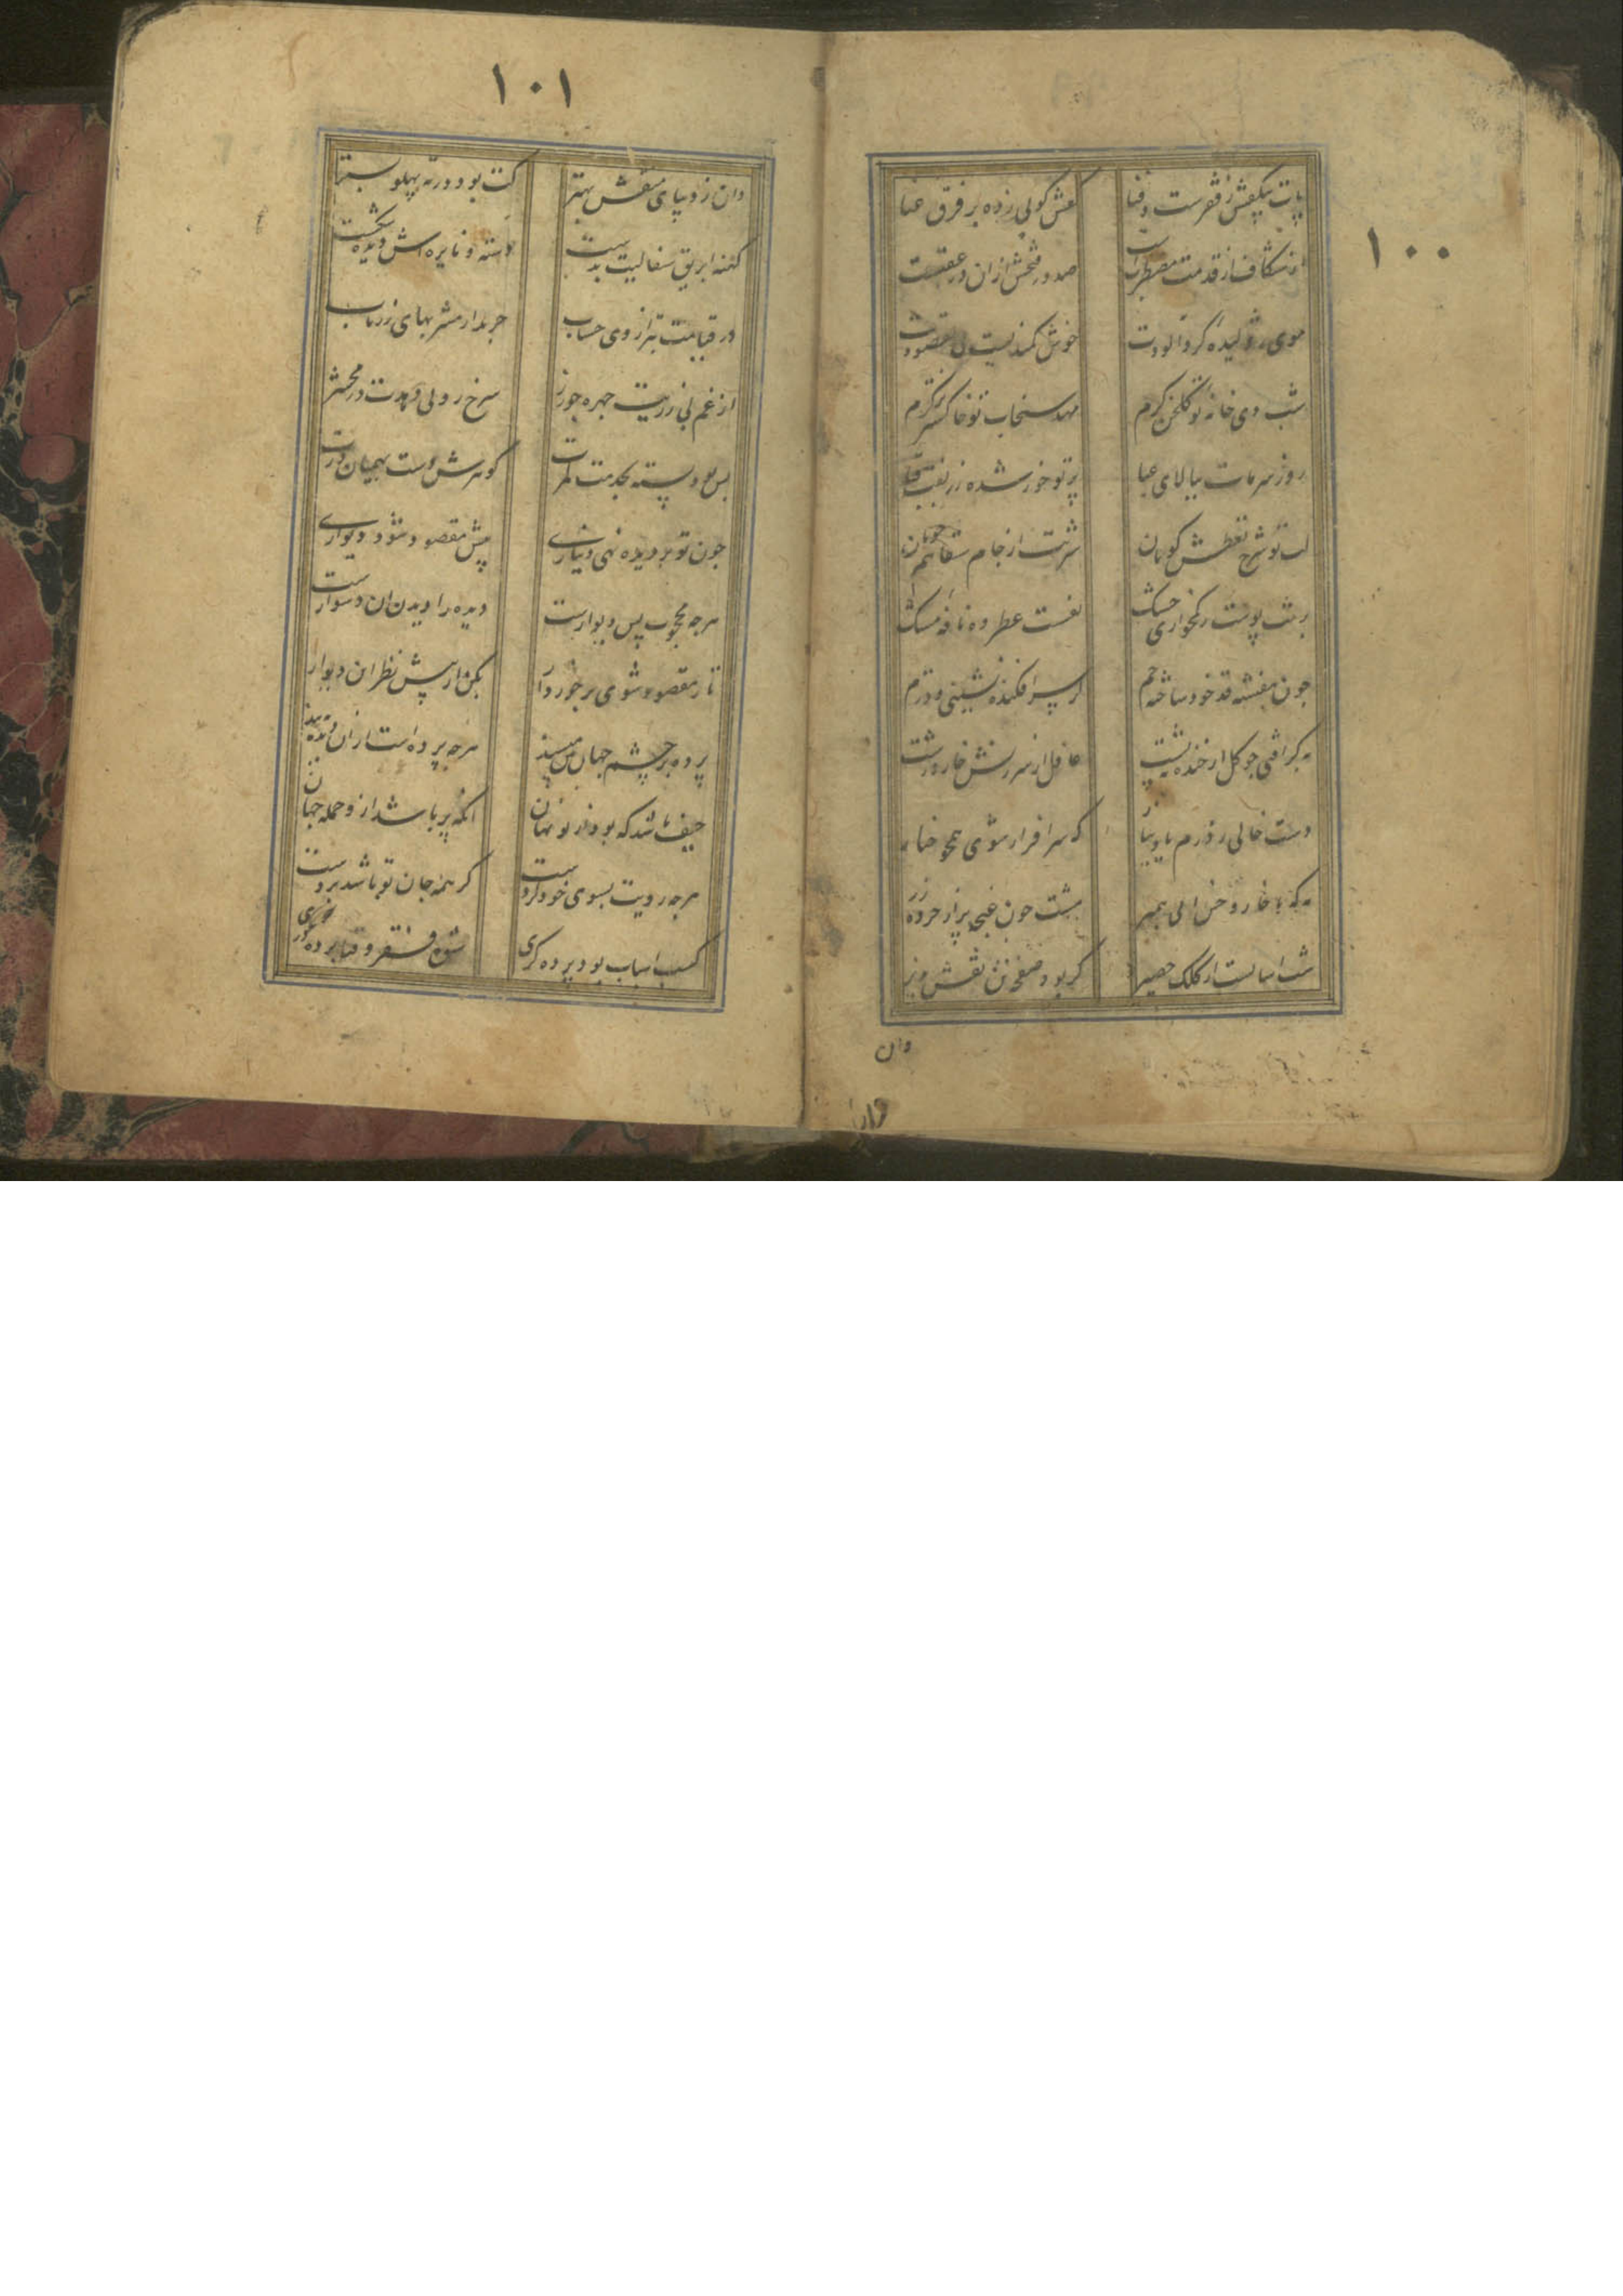 ۱۰۰
پات بیکفش ز فقرست و فنا
کفش کوبی زده بر فرق غنا
صد در فتحش ازان در عقبست
موی ژولیده کرد آلودت
خوش کمندیست مقصودت
شب دی خانه تو کلخن کرم
مهد سنجاب تو خاکستر نرم
روز سرمات ببالای عبا
پرتو خور شده زربفت قبا
لب تو شرح تعطش کویان
شربت از جام سقاهم جویان
نفست عطر ده نافه مشک
چون بنفشه قد خود ساخته خم
سر افکنده نشینی و دژم
به که افتی چو کل از خنده بپشت
غافل از سرزنش خار درشت
دست خالی ز درم
که سرافراز شوی همچو خیار
به که با خار و خس الی بهم
مشت چون غنچه پر از خرده زر
شب از کلک حصیر
کر بود صفحه تن نقش پذیر
وان
۱۰۱
وان ز دیبای منقش بهتر
کت بود در ته پهلو بستر
کهنه ابریق سفالیت بدست
دسته و نایزه اش دیده شکست
در قیامت بترازوی حساب
چربد از مشربهای زر ناب
از غم بی زریت چهره چو زر
سرخ رویی دهدت در محشر
بس بود بسته بخدمت کمرت
کو مباش بهمیان درت
چون تو بر دیده نهی دیناری
پیش مقصود شود دیواری
هرچه محجوب پس دیوارست
دیده را دیدن ان دشوارست
تا ز مقصود شوی برخوردار
بکن از پیش نظر این دیوار
پرده بر چشم جهان بین مپسند
هرچه پرده است ازان دیده ببند
حیف باشد که بود از تو نهان
انکه پر باشد ازو جمله جهان
هرچه رویت بسوی خود کردست
کر همه جان تو باشد پردست
کسب اسباب بود پرده کری
شیوه فقر و فنا پرده دری